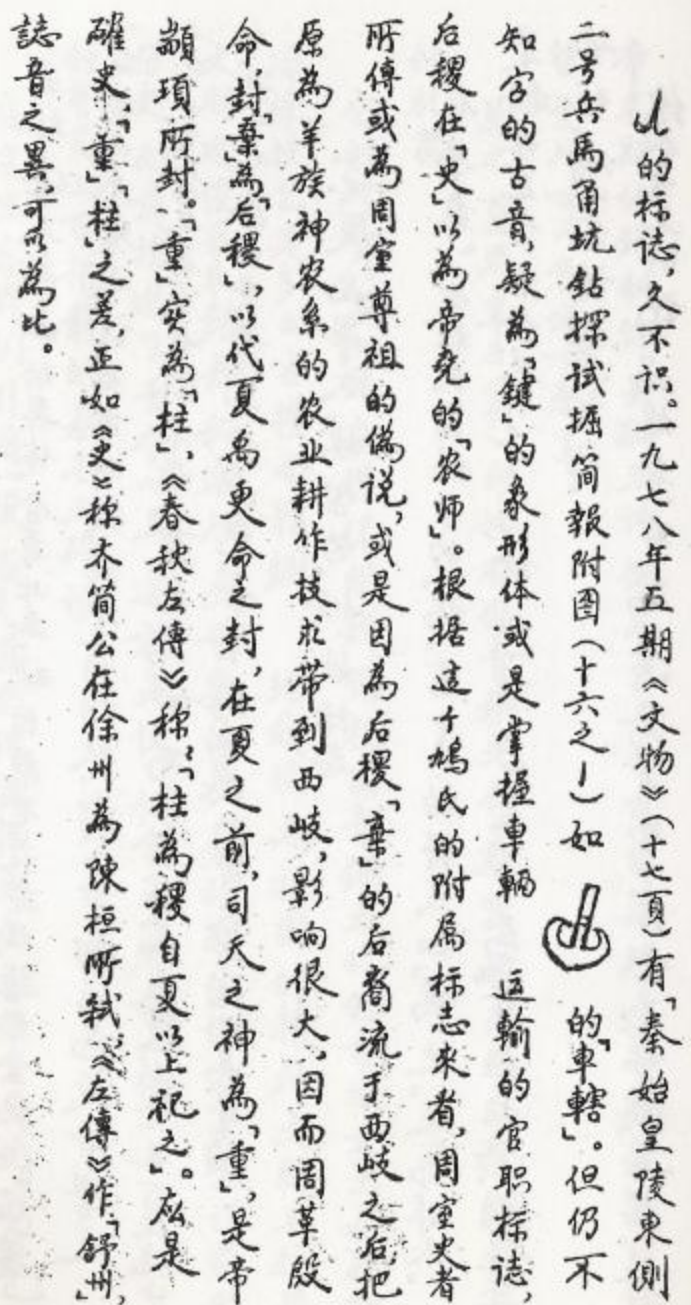 的标誌，久不识。一九七八年五期《文物》（十七頁）有「秦始皇陵東側
二号兵馬甬坑鈷探试掘简報附图（十六之1）如 的「車轄」。但仍不
知字的古音，疑為「鍵」的象形体或是掌握車輛 运輸的官职标誌，
后稷在「史」以為帝尧的「农师」。根据这个鳩氏的附属标志來者，周室史者
所傳或為周室尊祖的偽说，或是因為后稷「棄」的后裔流于西岐之后，把
原為羊族神农系的农业耕作技术带到西岐，影响很大，因而周革殷
命，封「棄」為「后稷」，以代夏禹更命之封，在夏之前，司天之神為「重」，是帝
顓頊所封。「重」实為「柱」，《春秋左傳》称：「柱為稷自夏以上祀之」。应是
確史，「重」「柱」之差，正如《史》称齐简公在徐州為陳桓所弑，《左傳》作「舒州」，
誌音之異，可以為比。